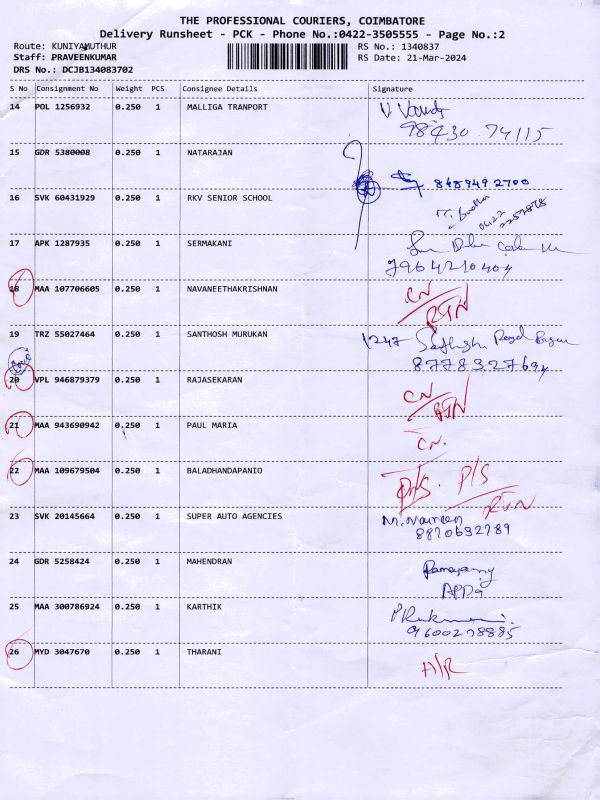 THE PROFESSIONAL COURIERS, COIMBATORE
Delivery Runsheet - PCK - Phone No.:0422-3505555 - Page No.:2
Route: KUNIYAMUTHUR
RS No.: 1340837
Staff: PRAVEENKUMAR
RS Date: 21-Mar-2024
DRS No.: DCJB134083702
S No Consignment No Weight PCS Consignee Details Signature
14 POL 1256932 0.250 1 MALLIGA TRANPORT
98430 74115
15 GDR 5380008 0.250 1 NATARAJAN
8489492700
16 SVK 60431929 0.250 1 RKV SENIOR SCHOOL
0422
2257878
17 APK 1287935 0.250 1 SERMAKANI
7964210404
18 MAA 107706605 0.250 1 NAVANEETHAKRISHNAN CN
RTN
19 TRZ 55027464 0.250 1 SANTHOSH MURUKAN 1247
8778327694
20 VPL 946879379 0.250 1 RAJASEKARAN CN
RTN
21 MAA 943690942 0.250 1 PAUL MARIA CN.
22 MAA 109679504 0.250 1 BALADHANDAPANIO P/S
RTN
23 SVK 20145664 0.250 1 SUPER AUTO AGENCIES M. Naireen
8870692789
24 GDR 5258424 0.250 1 MAHENDRAN
25 MAA 300786924 0.250 1 KARTHIK
9600278885
26 MYD 3047670 0.250 1 THARANI